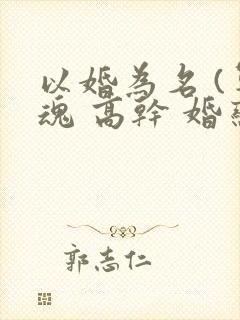 以婚為名(
魂 高幹 婚
郭志仁